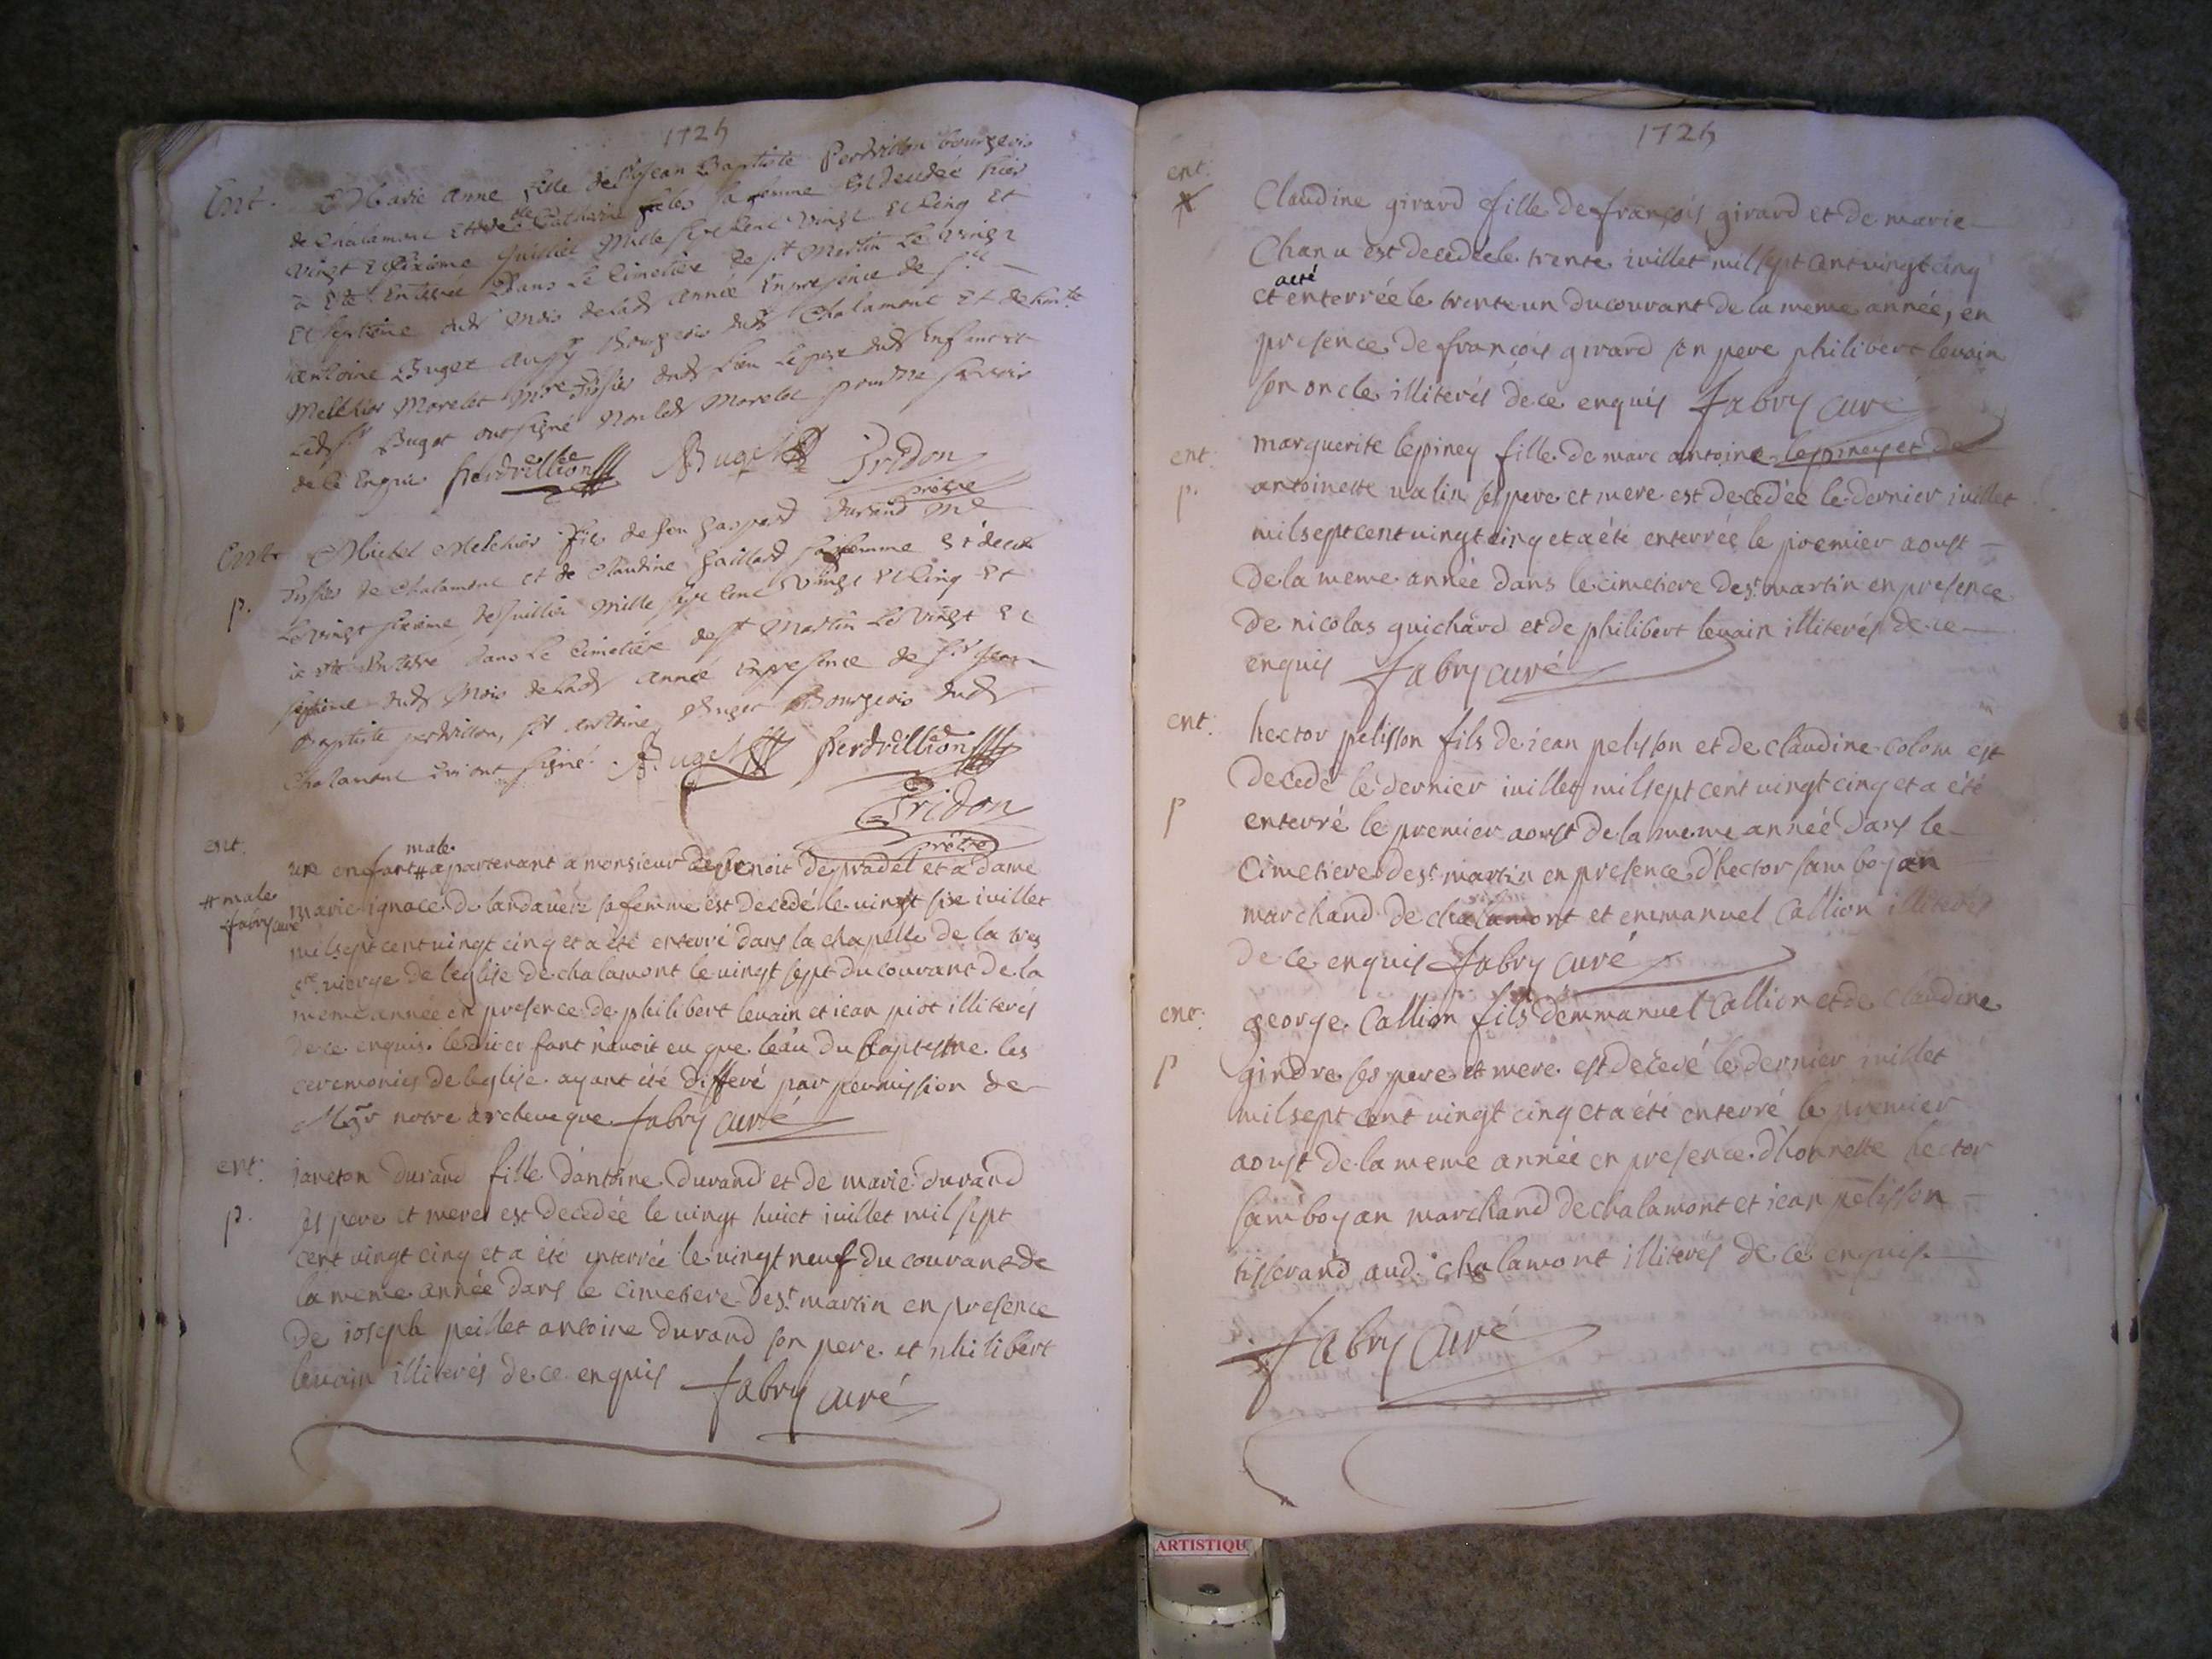 1725
Ent. Marie anne fille de Sr Jean Baptiste Perdrillon bourgeois
de Chalamont et de Catherine sa femme est decedeé hier
vingt sixieme Juillet mille sept cent vingt et cinq et
a été Enterreé Dans Le Cimetiere de st Martin Le vingt
et septieme dud mois de lad année En presence de sr
antoine Buget aussy Bourgeois dud Chalamont Et de
Melchior Morelet Me Tissier dud Lieu Le pere dud Enfant et
Led sr Buget ont signé Non led Morelet pour ne scavoir
de ce Enquis Perdrillion Buget Tridon
prêtre
Ent Michel Melchior fils de feu Gaspard Durand Me
Tissier de Chalamont et de Claudine Gaillard sa femme Est decedé
p. Le vingt sixieme de Juillet Mille sept cent vingt et Cinq Et
a été Enterré dans Le Cimetiere de st Martin Le vingt et
septieme dud Mois de lad année En presence de sr Jean
Baptiste perdrillon, sr antoine Buget Bourgeois dud
Chalamont qui ont signé. Buget Perdrillion
Tridon
prêtre
ent. une enfant # male apartenant a monsieur de benoit depradel et a dame
# male marie ignace de landauere sa femme est decedé le vingt six iuillet
fabry curé milsept cent vingt cinq et a été enterré dans la chapelle de la tres
ste vierge de leglise de chalamont le vingt sept du courant de la
meme année en presence de philibert levain et iean piot illiterés
de ce enquis. ledit enfant n'avoit eu que leau du baptesme les
ceremonies de leglise ayant été differé par permission de
Mgr notre archeveque fabry curé
ent. ianeton durand fille d'antoine durand et de marie durand
p. ses pere et mere est decedée le vingt huict iuillet mil sept
cent vingt cinq et a été enterrée le vingt neuf du courant de
la meme année dans le cimetiere de st martin en presence
de ioseph peillet antoine durand son pere et philibert
levain illiterés de ce enquis fabry curé
1725
ent. Claudine girard fille de françois girard et de marie
Chanu est decedée le trente iuillet mil sept cent vingt cinq
et a eté enterrée le trente un du courant de la meme année, en
presence de françois girard son pere philibert levain
son oncle illiterés de ce enquis fabry curé
ent. marguerite lespiney fille de marc antoine lespiney et de
p. antoinette valin ses pere et mere est decedée le dernier iuillet
milsept cent vingt cinq et a été enterrée le premier aoust
de la meme année dans le cimetiere de st martin en presence
de nicolas guichard et de philibert levain illiterés de ce
enquis fabry curé
ent. hector pelisson fils de iean pelisson et de claudine colom est
decedé le dernier iuillet milsept cent vingt cinq et a été
p enterré le premier aoust de la meme année dans le
cimetiere de st martin en presence d'hector samboyan
marchand de chalamont et emmanuel Callion illiterés
de ce enquis fabry curé
ent. george Callion fils d'emmanuel Callion et de claudine
p gindre ses pere et mere est decedé le dernier iuillet
milsept cent vingt cinq et a été enterré le premier
aoust de la meme année en presence d'honneste hector
samboyan marchand de chalamont et iean pelisson
tisserand aud. chalamont illiterés de ce enquis
fabry curé
ARTISTIQU